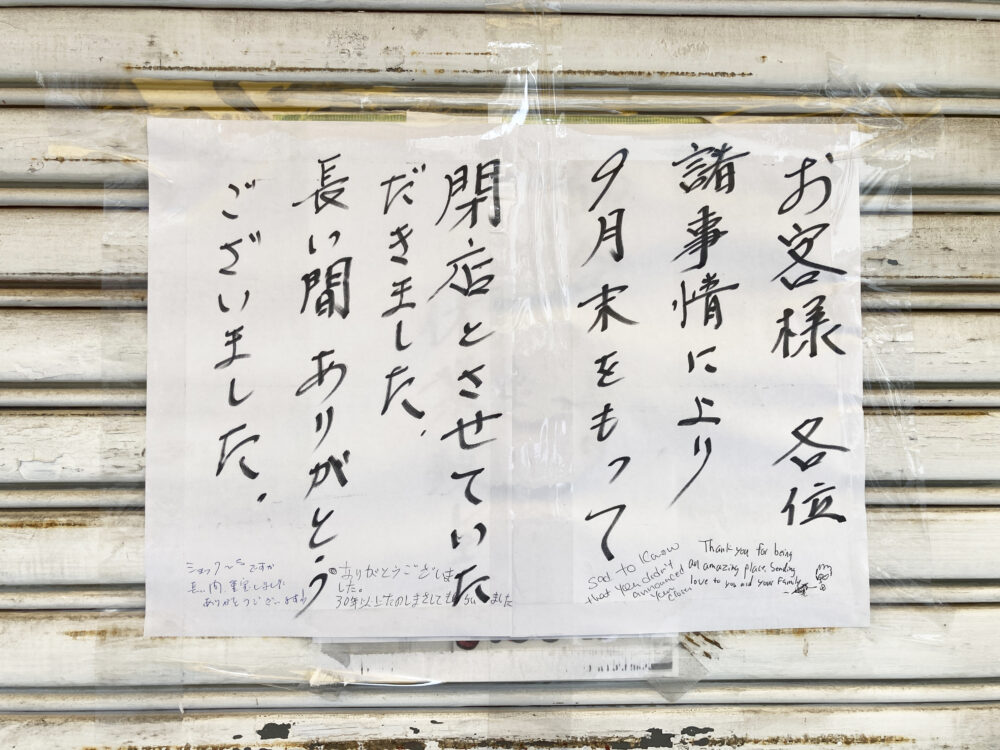 お客様 各位
諸事情により
9月末をもって
閉店とさせていた
だきました。
長い間 ありがとう
ございました。
Thank you for being
an amazing place. Sending
love to you and your Family
sad to know
that you didn't
announced
your
close
ありがとうございま
した。
30年以上たのしませてもらいました
ショック〜ですが
長い間
しました
ありがとうございます